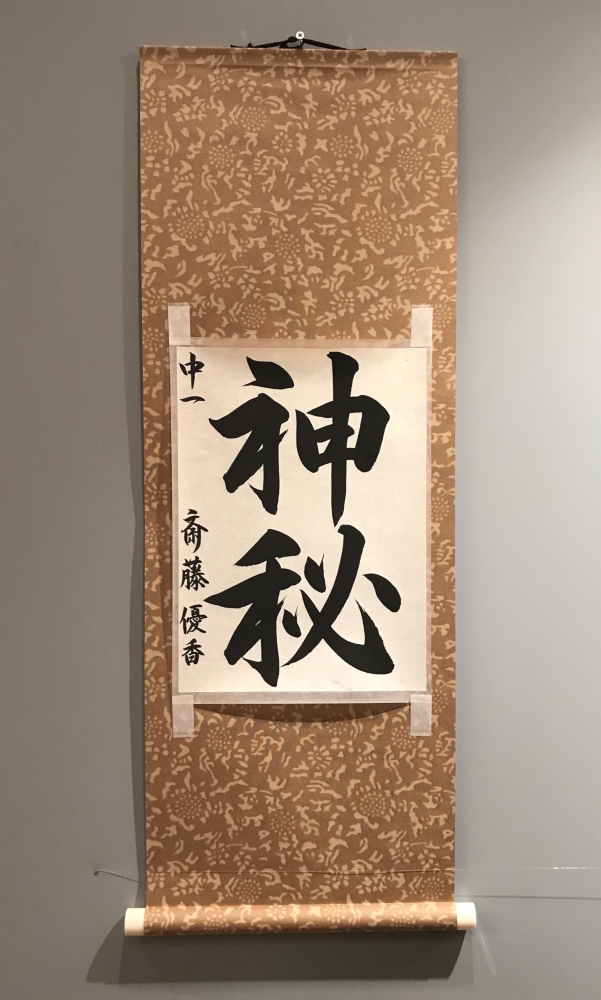 神秘
中一
斎藤優香